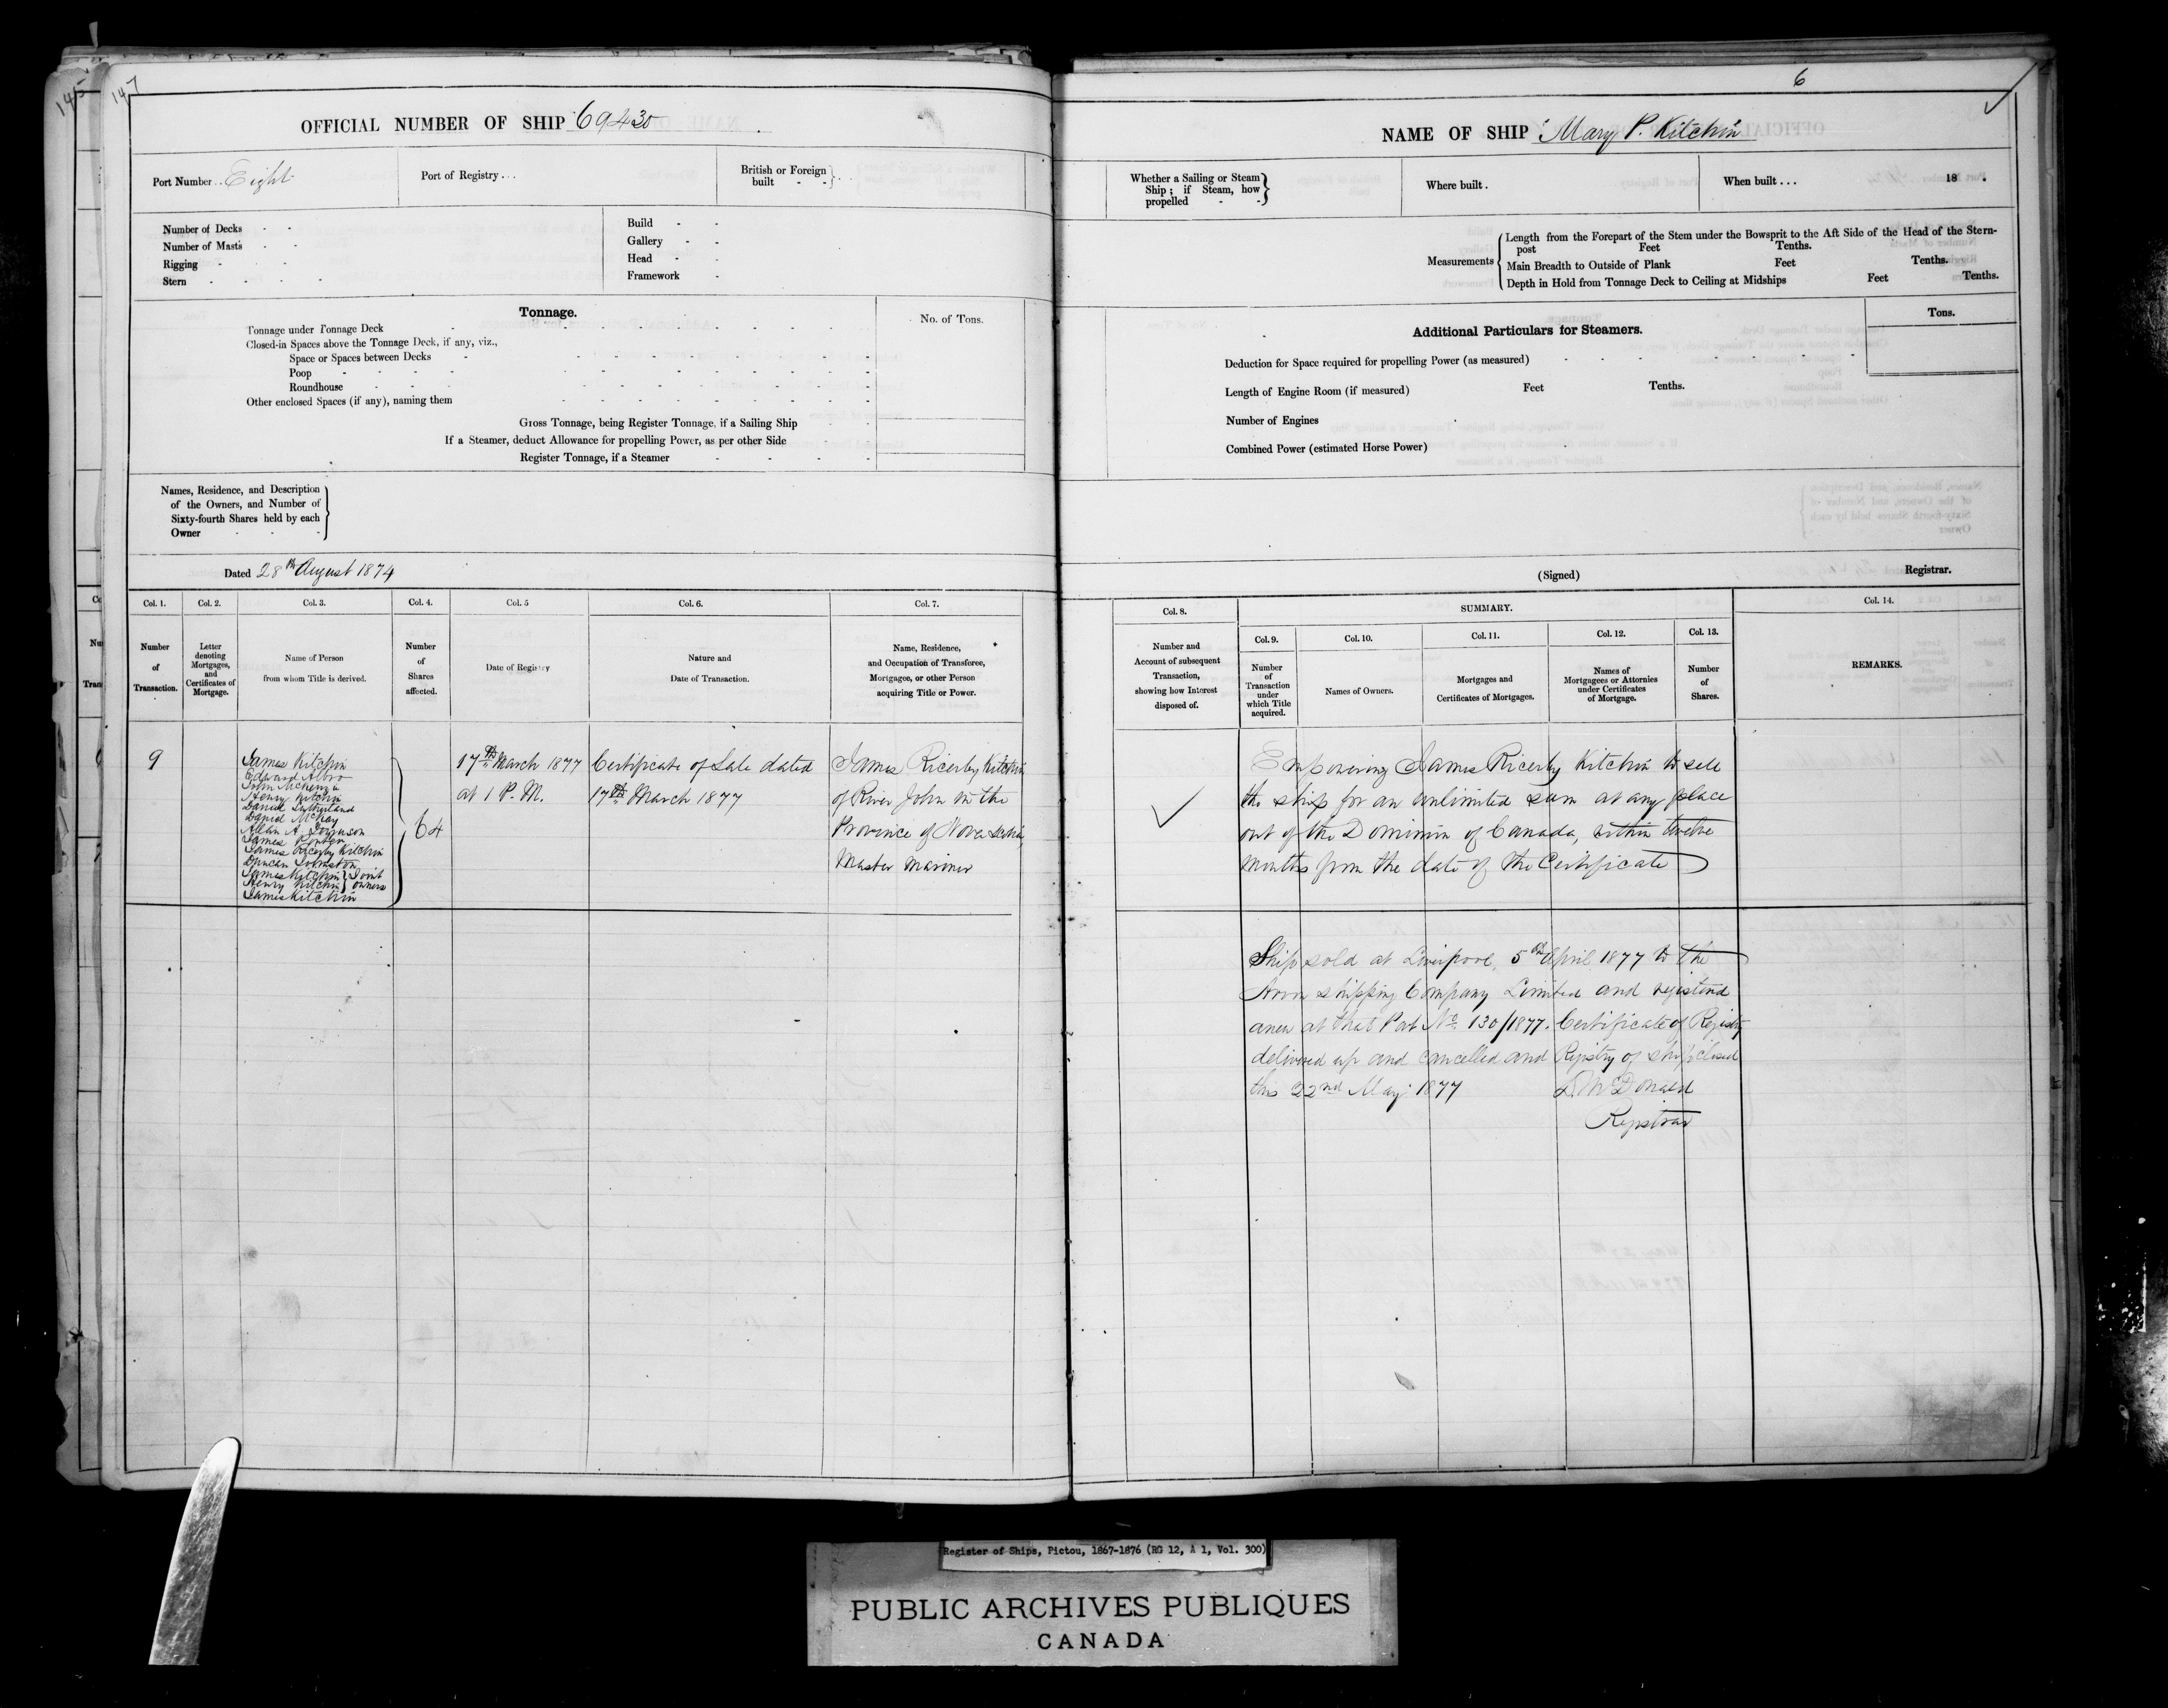 145
147
OFFICIAL NUMBER OF SHIP 69430
Port Number .. Eight
Port of Registry . . .
British or Foreign built - -
Number of Decks - -
Number of Masts - -
Rigging - - -
Stern - - - -
Build - -
Gallery - -
Head - -
Framework -
Tonnage.
No. of Tons.
Tonnage under Tonnage Deck
Closed-in Spaces above the Tonnage Deck, if any, viz.,
Space or Spaces between Decks
Poop
Roundhouse
Other enclosed Spaces (if any), naming them
Gross Tonnage, being Register Tonnage, if a Sailing Ship
If a Steamer, deduct Allowance for propelling Power, as per other Side
Register Tonnage, if a Steamer
Names, Residence, and Description
of the Owners, and Number of
Sixty-fourth Shares held by each
Owner
Dated 28th August 1874
Col. 1. Col. 2. Col. 3. Col. 4. Col. 5 Col. 6. Col. 7.
Number of Transaction.
Letter denoting Mortgages, and Certificates of Mortgage.
Name of Person from whom Title is derived.
Number of Shares affected.
Date of Registry
Nature and Date of Transaction.
Name, Residence, and Occupation of Transferee, Mortgagee, or other Person acquiring Title or Power.
9
James Kitchin
Edward Albro
John McKenzie
Henry Kitchin
Daniel Sutherland
David McKay
Allan A. Ferguson
James Porter
James Ricerby Kitchin
Duncan Johnston
James Kitchin } Joint
Henry Kitchin } owners
James Kitchin
64
17th March 1877
at 1 P.M.
Certificate of Sale dated
17th March 1877
James Ricerby Kitchin
of River John in the
Province of Nova Scotia,
Master Mariner
6
NAME OF SHIP "Mary P. Kitchin"
Whether a Sailing or Steam Ship ; if Steam, how propelled - -
Where built .
When built . . . 18 .
Measurements
Length from the Forepart of the Stem under the Bowsprit to the Aft Side of the Head of the Stern-
post Feet Tenths.
Main Breadth to Outside of Plank Feet Tenths.
Depth in Hold from Tonnage Deck to Ceiling at Midships Feet Tenths.
Additional Particulars for Steamers.
Tons.
Deduction for Space required for propelling Power (as measured)
Length of Engine Room (if measured) Feet Tenths.
Number of Engines
Combined Power (estimated Horse Power)
(Signed) Registrar.
Col. 8. SUMMARY. Col. 14.
Col. 9. Col. 10. Col. 11. Col. 12. Col. 13.
Number and Account of subsequent Transaction, showing how Interest disposed of.
Number of Transaction under which Title acquired.
Names of Owners.
Mortgages and Certificates of Mortgages.
Names of Mortgagees or Attornies under Certificates of Mortgage.
Number of Shares.
REMARKS.
Empowering James Ricerby Kitchin to sell
the ship for an unlimited sum at any place
out of the Dominion of Canada, within twelve
months from the date of the Certificate
Ship sold at Liverpool, 5th April 1877 to the
shipping Company Limited and registered
anew at that Port No. 130/1877. Certificate of Registry
delivered up and cancelled and Registry of ship closed
this 22nd May 1877 D. McDonald
Registrar
Register of Ships, Pictou, 1867-1876 (RG 12, A 1, Vol. 300)
PUBLIC ARCHIVES PUBLIQUES
CANADA